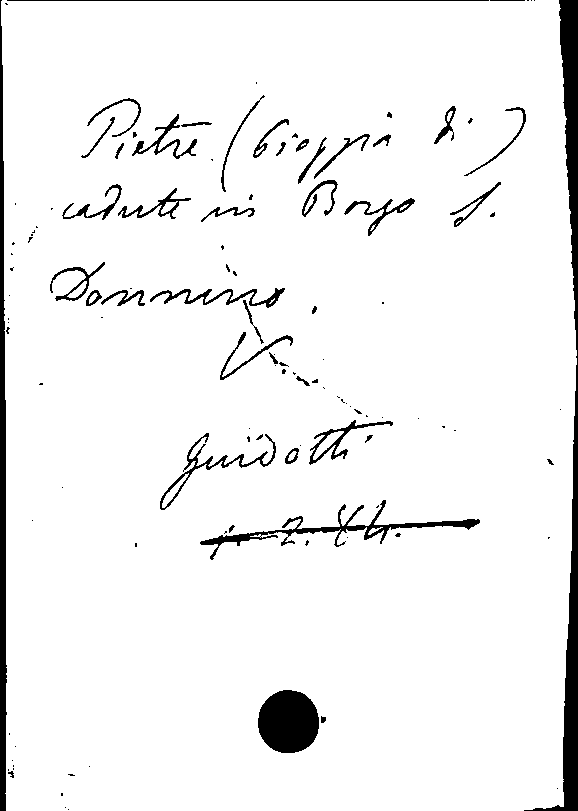 Pietre (Pioggia di)
cadute in Borgo S.
Donnino.
V.
Guidotti
1. 2. 84.